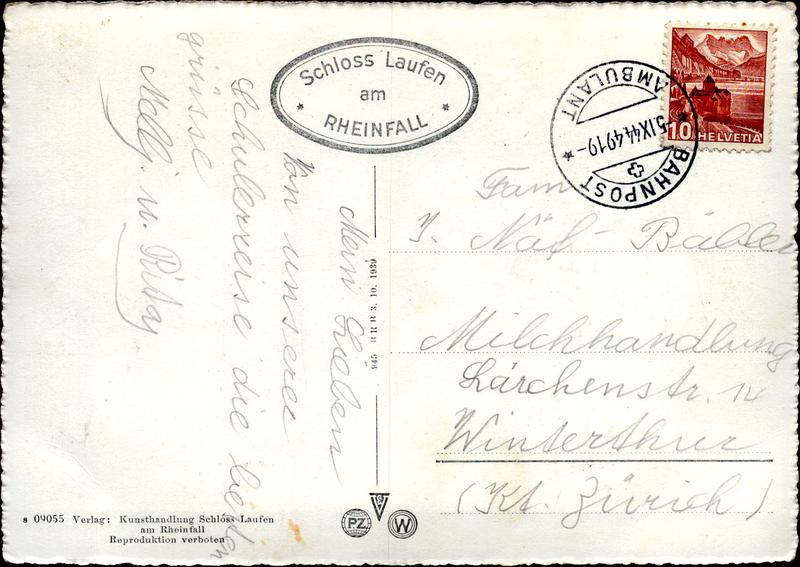 Schloss Laufen
am
RHEINFALL
Mein Lieben
Von unserer
Schulerreise die besten
grüsse
Melly. u. Rita
945 B R B 3. 10. 1939
AMBULANT
-5.IX.44.4919-
BAHNPOST
10 HELVETIA
Fam
J. Näf - Bäbler
Milchhandlung
Lärchenstr. 14
Winterthur
(Kt. Zürich)
s 09055 Verlag: Kunsthandlung Schloss Laufen
am Rheinfall
Reproduktion verboten
PZ
W